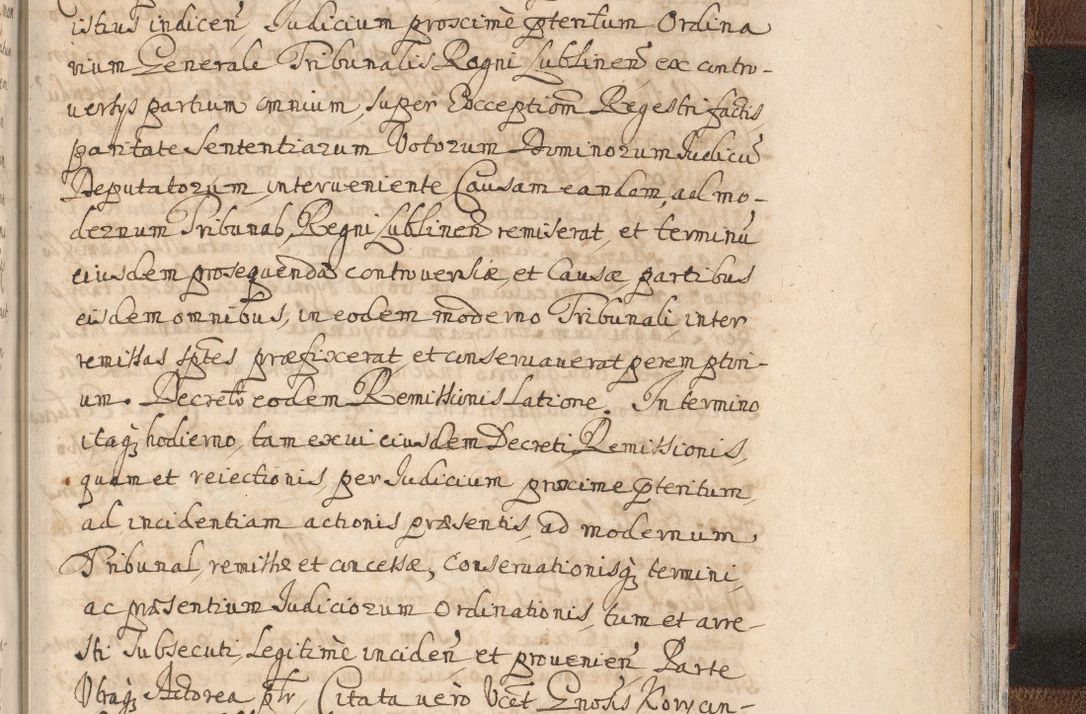 istius indicen̄, Judicium proximè p̄teritum Ordina
rium Generale Tribunalis Regni Lublinen̄ ex contro-
versys partium omnium, super Exceptiom̄ Regestri factis,
paritate Sententiarum Votorum Dominorum Judicū
Deputatorum, interueniente Causam eandem, ad mo-
dernum Tribunal, Regni Lublinen̄ remiserat, et terminū
eiusdem prosequendæ controuersiæ, et Causæ, partibus
eisdem omnibus, in eodem moderno Tribunali, inter
remissas sp̄tes præfixerat, et conseruauerat perempton-
um. Decreto eodem Remissionis Latione. In termino
itaq̄ hodierno, tam ex ui eiusdem Decreti Remissionis,
quam et reiectionis, per Judicium proxime p̄teritum,
ad incidentiam actionis præsentis, ad modernum,
Tribunal, remissæ et concessæ, Conseruationisq̄ termini,
ac præsentium Judiciorum Ordinationis, tum et arre-
sti Subsecuti, Legitimè inciden̄ et prouenien̄ Parte
Utraq̄ Actorea p̄tr, Citata uerò Ucēt Gn̄osis Korycin-